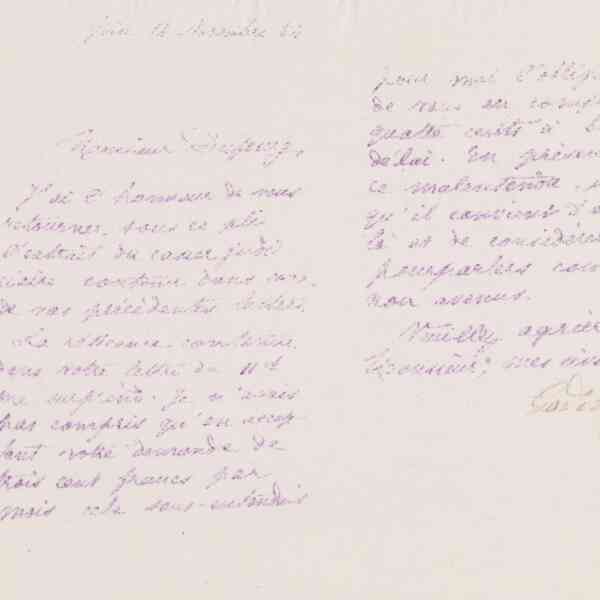 Novembre
Monsieur
J'ai l'honneur de vous
retourner, sous ce pli
l'extrait du casier judi
ciaire contenu dans
de vos précédentes lettres.
La
dans votre lettre du 11 ct
me surprend. Je n'avais
pas compris qu'en accep-
tant votre demande de
trois cent francs par
mois cela sous-entendais
pour moi l'oblig
de vous en
quatre cents à
délai. En présen
ce malentendu,
qu'il convient d'
là et de considérer
pourparlers com
non avenus.
Veuillez agréer
Monsieur, mes